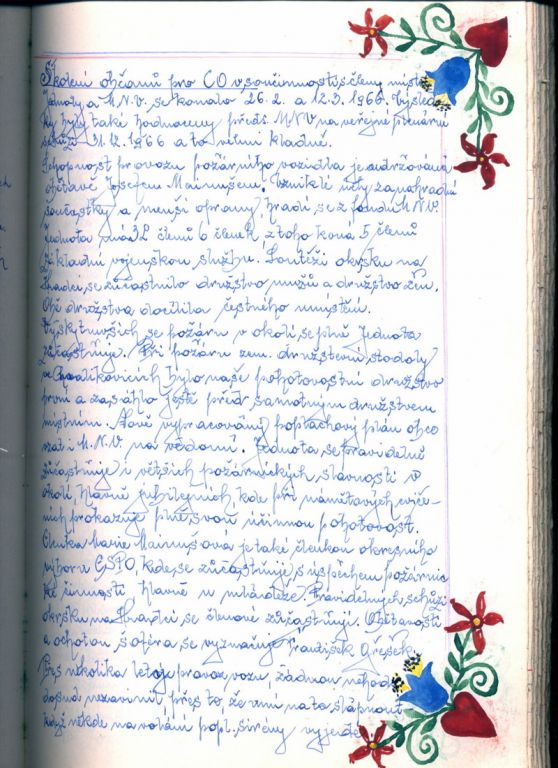 Školení občanů pro CO v součinnosti s členy místní
Jednoty a M.N.V. se konalo 26.2. a 12.3. 1966. Výsled
ky byly také hodnoceny předs. MNV na veřejné plenární
schůzi 31.12.1966 a to velmi kladně.
Schopnost provozu požárního vozidla je udržována
obětavě Josefem Maimušem. Vzniklé účty za nahradní
součástky a menší opravy, hradí se z fondů M.N.V.
Jednota má 32 členů 6 členek z toho koná 5 členů
základní vojenskou službu. Soutěží okrsku na
Hradci se zúčastnilo družstvo mužů a družstvo žen.
Obě družstva docílila čestného umístění.
Vyskytnuvších se požárů v okolí se plně Jednota
zúčastňuje. Při požáru zem. družstevní stodoly
ve bylo naše pohotovostní družstvo
první a zasáhlo ještě před samotným družstvem
místním. Nově vypracovaný poplachový plán obce
vzat i M.N.V. na vědomí. Jednota se pravidelně
zúčastňuje i větších požárnických slavností v
okolí hlavně jubilejních kde při námětových cviče-
ních prokazuje plně svou účinnou pohotovost.
Členka Marie Maimušová je také členkou okresního
výboru ČSPO, kde se zúčastňuje s úspěchem požárnic
ké činnosti hlavně u mládeže. Pravidelných schůzí
okrsku na Hradci se členové zúčastňují. Obětavostí
a ochotou šoféra se vyznačuje František Gřešek.
Přes několika letý provoz vozu žádnou nehodu
dosud nezavinil přes to, že umí na to šlápnout
když někde na volání popl. sirény vyjede.